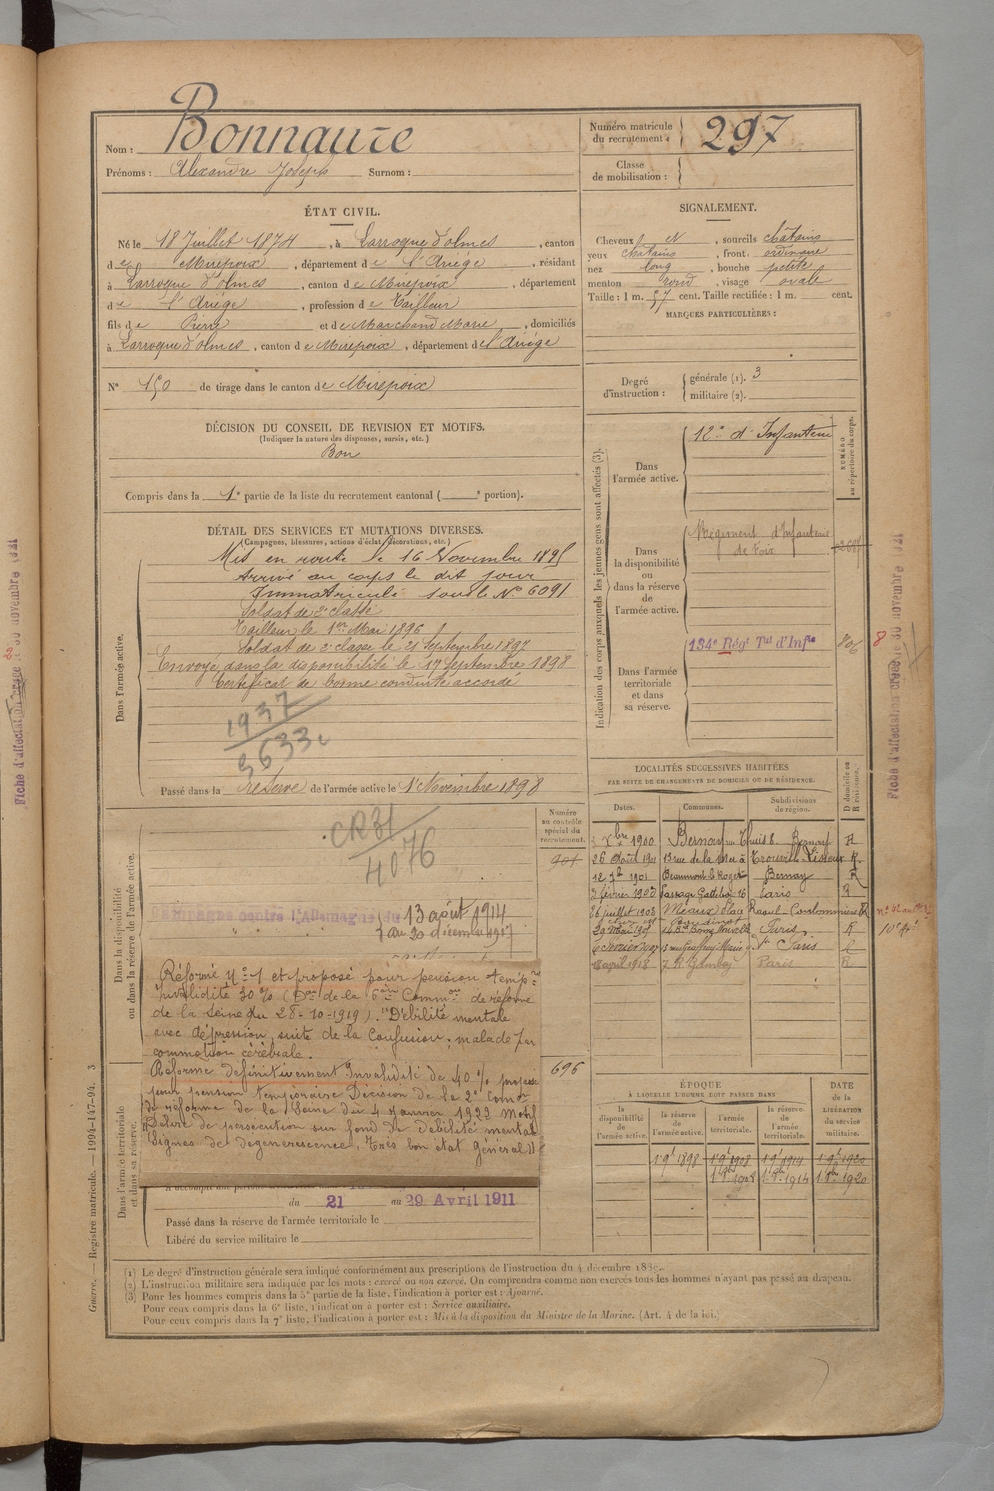 Nom : Bonnaure
Prénoms : Alexandre Joseph Surnom :
Numéro matricule du recrutement : 297
Classe de mobilisation :
ÉTAT CIVIL.
Né le 18 Juillet 1874, à Larroque d'olmes, canton
de Mirepoix, département de l'Ariége, résidant
à Larroque d'olmes, canton de Mirepoix, département
de l'Ariége, profession de Tailleur
fils de Pierre et de Marchand Marie, domiciliés
à Larroque d'olmes, canton de Mirepoix, département de l'Ariége
N° 150 de tirage dans le canton de Mirepoix
SIGNALEMENT.
Cheveux et, sourcils châtains
yeux châtains, front ordinaire
nez long, bouche petite
menton rond, visage ovale
Taille : 1 m. 57 cent. Taille rectifiée : 1 m. cent.
MARQUES PARTICULIÈRES :
Degré d'instruction : générale (1). 3
militaire (2).
DÉCISION DU CONSEIL DE REVISION ET MOTIFS.
(Indiquer la nature des dispenses, sursis, etc.)
Bon
Compris dans la 1e partie de la liste du recrutement cantonal ( e portion).
DÉTAIL DES SERVICES ET MUTATIONS DIVERSES.
(Campagnes, blessures, actions d'éclat, décorations, etc.)
Dans l'armée active.
Mis en route le 16 Novembre 1895
Arrivé au corps le dit jour
Immatriculé sous le N° 6091
Soldat de 2e classe
Tailleur le 1er Mai 1896
Soldat de 2e classe le 21 Septembre 1897
Envoyé dans la disponibilité le 17 Septembre 1898
Certificat de bonne conduite accordé
1937
3633
Passé dans la réserve de l'armée active le 1er Novembre 1898
Indication des corps auxquels les jeunes gens sont affectés (3).
NUMÉRO au répertoire du corps.
Dans l'armée active.
12e d'Infanterie
Dans la disponibilité ou dans la réserve de l'armée active.
Régiment d'Infanterie
de Foix
Dans l'armée territoriale et dans sa réserve.
134e Régt Tal d'Infie
806
8
Fiche d'affectation créée le 30 novembre 1921
Fiche d'affectation créée le 30 novembre 1921
Dans la disponibilité ou dans la réserve de l'armée active.
Numéro au contrôle spécial du recrutement.
901
CR31
4076
Campagne contre l'Allemagne du 13 août 1914
au 20 décembre 1917
Réformé n° 1 et proposé pour pension temp.re
Invalidité 30 % (Don de la 6ème Common de réforme
de la Seine du 28-10-1919). "Débilité mentale
avec dépression, suite de la Confusion; malade par
commotion cérébrale.
Réformé définitivement Invalidité de 40 % proposé
pour pension temporaire Décision de la 2e Comon
de réforme de la Seine du 4 Janvier 1922 Motif
Délire de persécution sur fond de débilité mentale
Signes de dégénérescence. Très bon état général"
696
Dans l'armée territoriale et dans sa réserve.
du 21 au 29 Avril 1911
Passé dans la réserve de l'armée territoriale le
Libéré du service militaire le
LOCALITÉS SUCCESSIVES HABITÉES
PAR SUITE DE CHANGEMENTS DE DOMICILE OU DE RÉSIDENCE.
Dates. Communes. Subdivisions de région. D domicile ou R résidence.
Xbre 1900 Bernay Bernay R
26 Août 1901 13 rue de la Mer à Trouville Lisieux R
12 7bre 1901 Beaumont le Roger Bernay R
3 février 1903 Passage Gatbois 16 Paris R
26 juillet 1903 Meaux Coulommiers R
29 mai 1905 Bd Bonne Nouvelle Paris R
février 1907 Paris
avril 1918 7 R Paris R
ÉPOQUE
À LAQUELLE L'HOMME DOIT PASSER DANS
la disponibilité de l'armée active. la réserve de l'armée active. l'armée territoriale. la réserve de l'armée territoriale.
DATE de la LIBÉRATION du service militaire.
1 9bre 1898 1 9bre 1908 1 9bre 1914 1 9bre 1920
1908 1914 1920
(1) Le degré d'instruction générale sera indiqué conformément aux prescriptions de l'instruction du 4 décembre 1889.
(2) L'instruction militaire sera indiquée par les mots : exercé ou non exercé. On comprendra comme non exercés tous les hommes n'ayant pas passé au drapeau.
(3) Pour les hommes compris dans la 5e partie de la liste, l'indication à porter est : Ajourné.
Pour ceux compris dans la 6e liste, l'indication à porter est : Service auxiliaire.
Pour ceux compris dans la 7e liste, l'indication à porter est : Mis à la disposition du Ministre de la Marine. (Art. 4 de la loi.)
Guerre. — Registre matricule. — 1994-147-94. 3